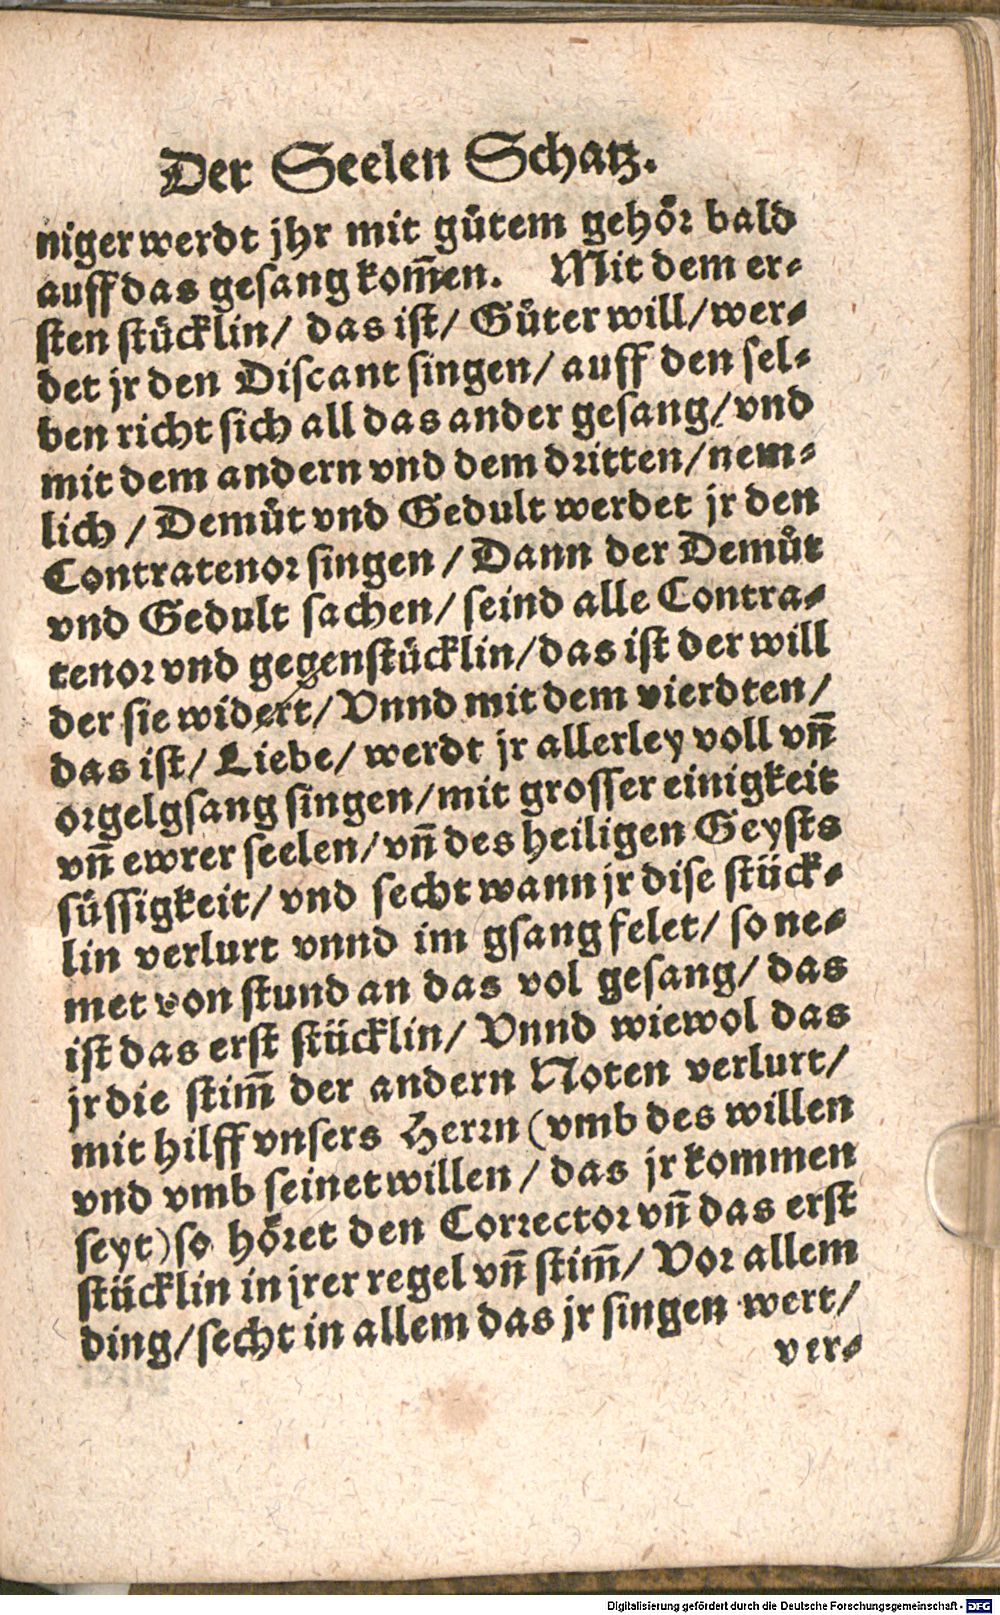 Der Seelen Schatz.
niger werdt jhr mit gůtem gehoͤr bald
auff das gesang kom̃en. Mit dem er⸗
sten stücklin/ das ist/ Gůter will/ wer⸗
det jr den Discant singen/ auff den sel⸗
ben richt sich all das ander gesang/ vnd
mit dem andern vnd dem dritten/ nem⸗
lich / Demůt vnd Gedult werdet jr den
Contratenor singen / Dann der Demůt
vnd Gedult sachen/ seind alle Contra⸗
tenor vnd gegenstücklin/ das ist der will
der sie widert/ Vnnd mit dem vierdten/
das ist/ Liebe/ werdt jr allerley voll vñ
orgelgsang singen/ mit grosser einigkeit
vñ ewrer seelen/ vñ des heiligen Geysts
süssigkeit/ vnd secht wann jr dise stück⸗
lin verlurt vnnd im gsang felet/ so ne⸗
met von stund an das vol gesang/ das
ist das erst stücklin/ Vnnd wiewol das
jr die stim̃ der andern Noten verlurt/
mit hilff vnsers Herrn (vmb des willen
vnd vmb seinet willen / das jr kommen
seyt) so hoͤret den Corrector vñ das erst
stücklin in jrer regel vñ stim̃/ Vor allem
ding/ secht in allem das jr singen wert/
ver⸗
Digitalisierung gefördert durch die Deutsche Forschungsgemeinschaft - DFG